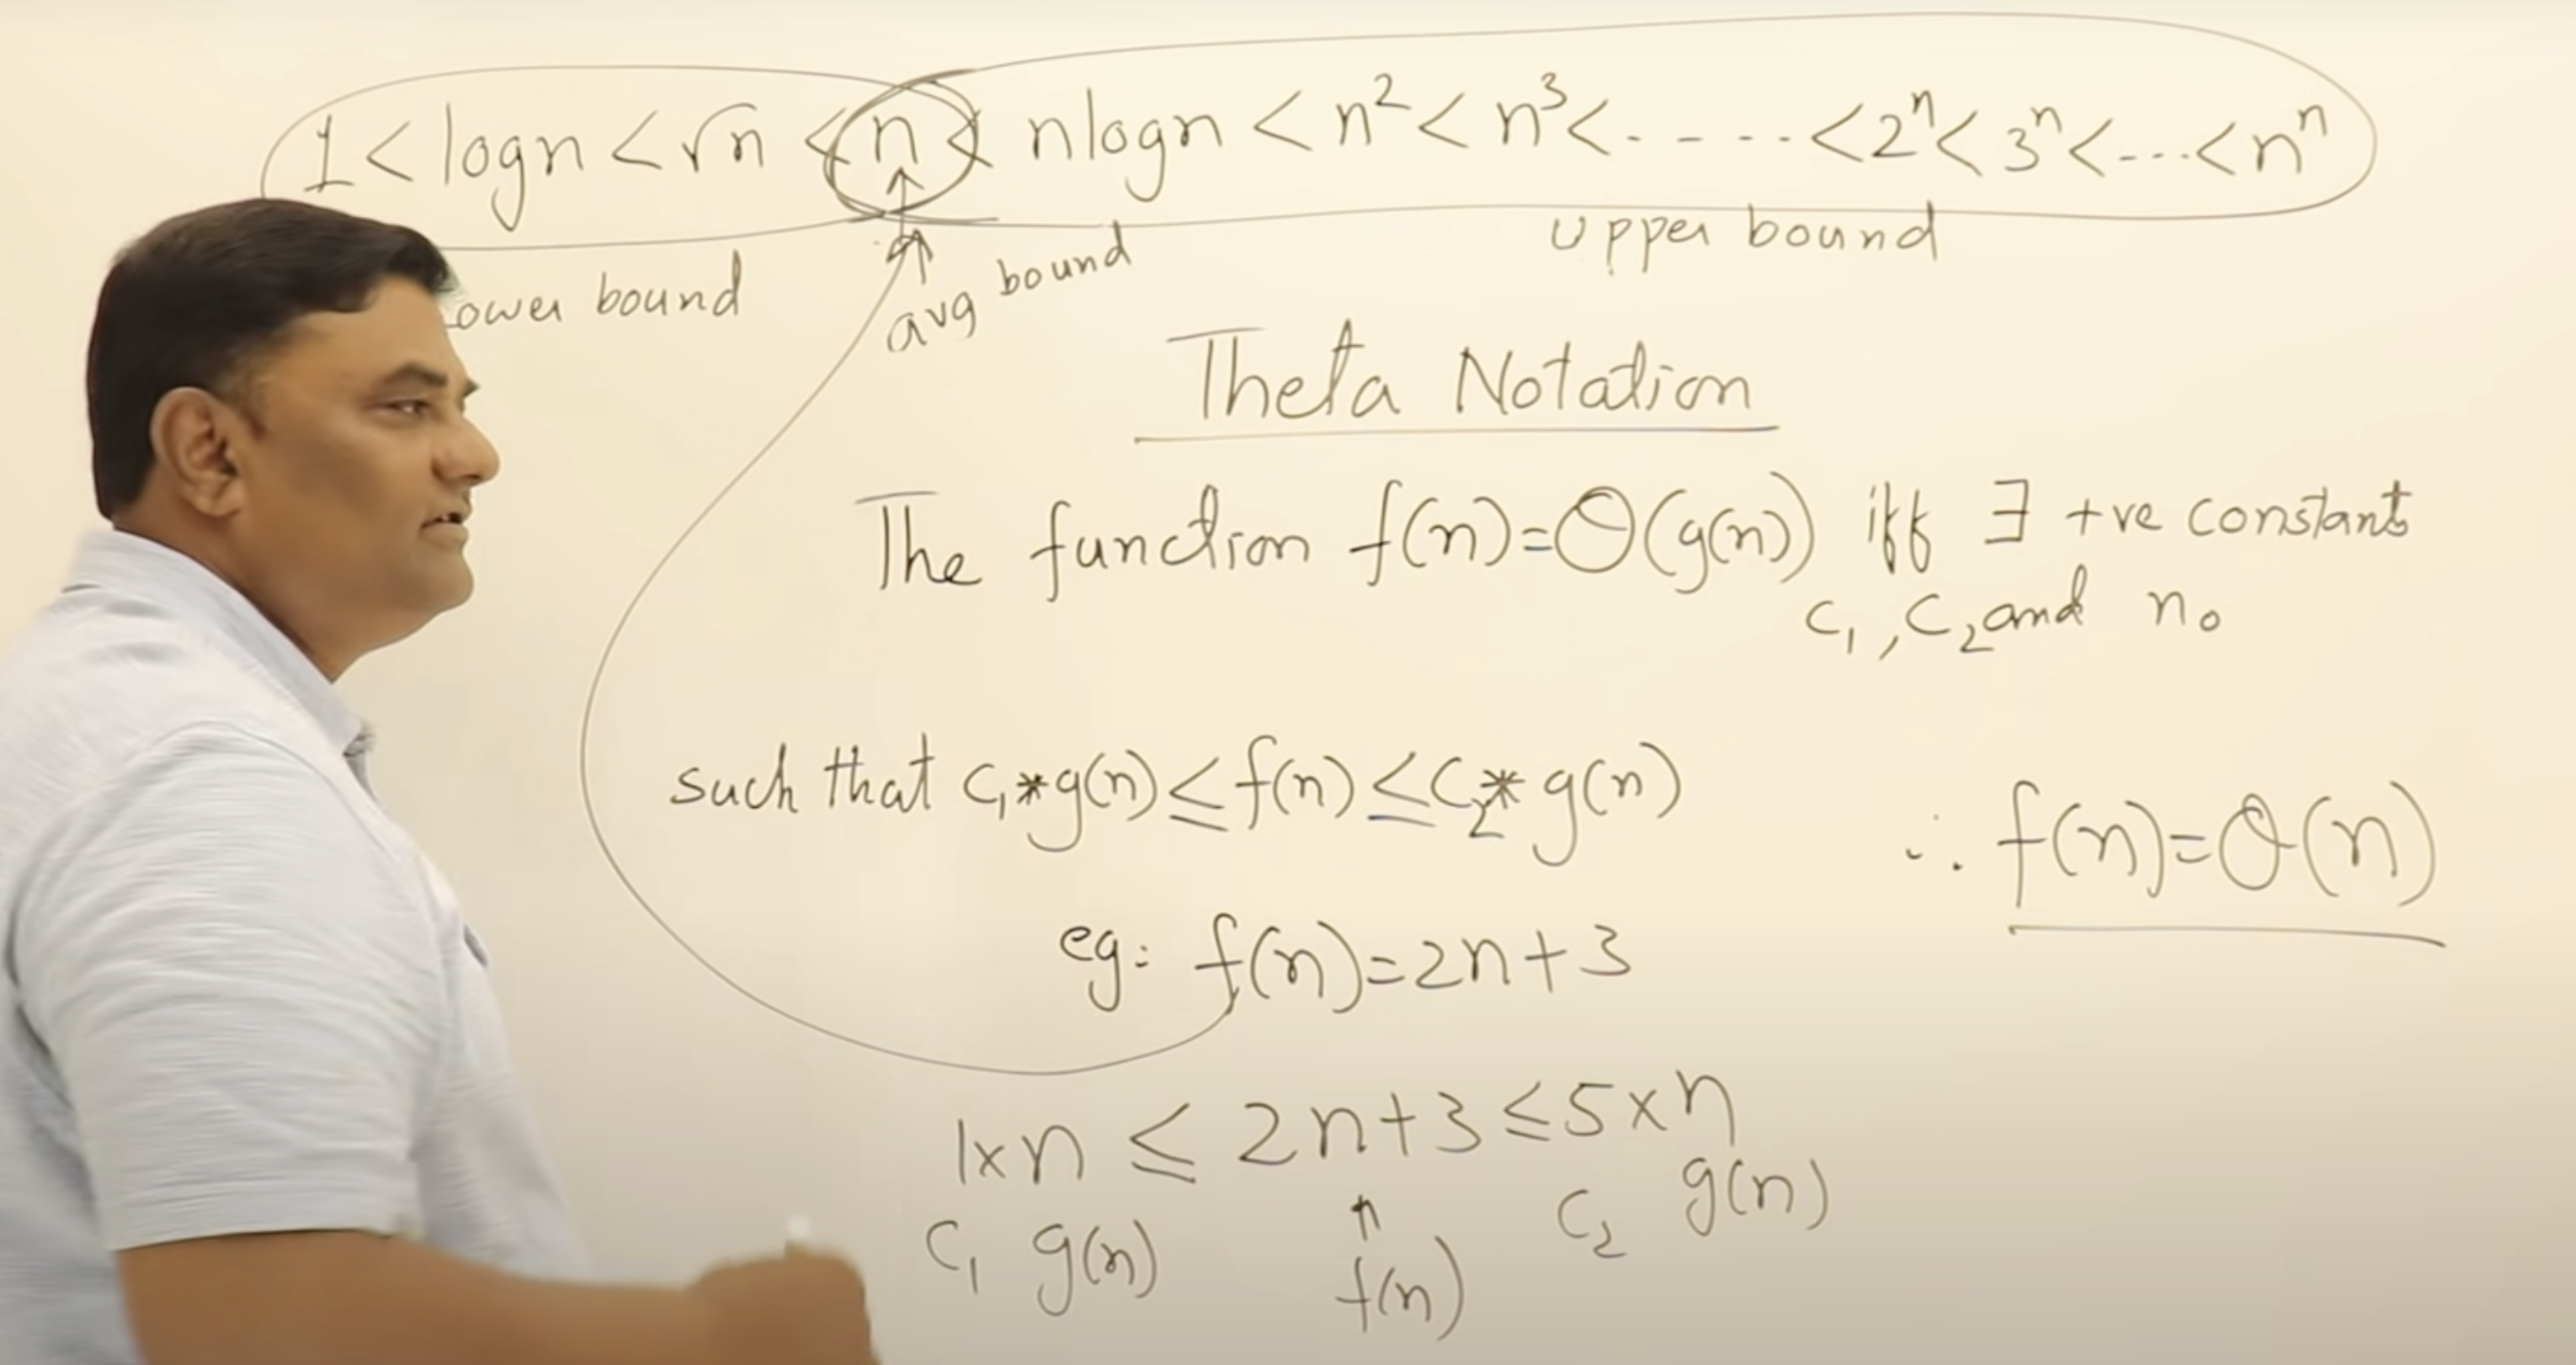 1 < logn < √n < n < nlogn < n² < n³ < ----- < 2ⁿ < 3ⁿ < --- < nⁿ
ower bound
avg bound
Upper bound
Theta Notation
The function f(n)=Θ(g(n)) iff ∃ +ve constants
C₁, C₂ and n₀
such that C₁*g(n) ≤ f(n) ≤ C₂* g(n)
∴ f(n)=Θ(n)
eg: f(n)=2n+3
1×n ≤ 2n+3 ≤ 5×n
C₁ g(n) f(n) C₂ g(n)